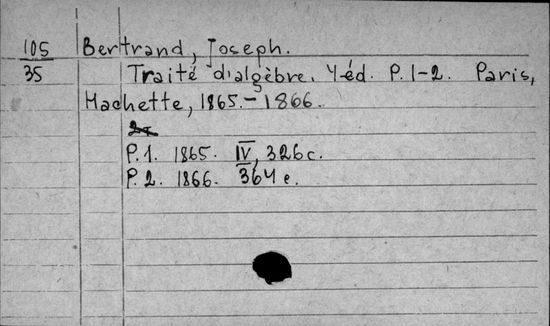 105 Bertrand, Joseph.
35 Traité d'algèbre. 4 éd. P. 1-2. Paris,
Hachette, 1865.-1866.
P. 1. 1865. IV, 326 c.
P. 2. 1866. 364 c.